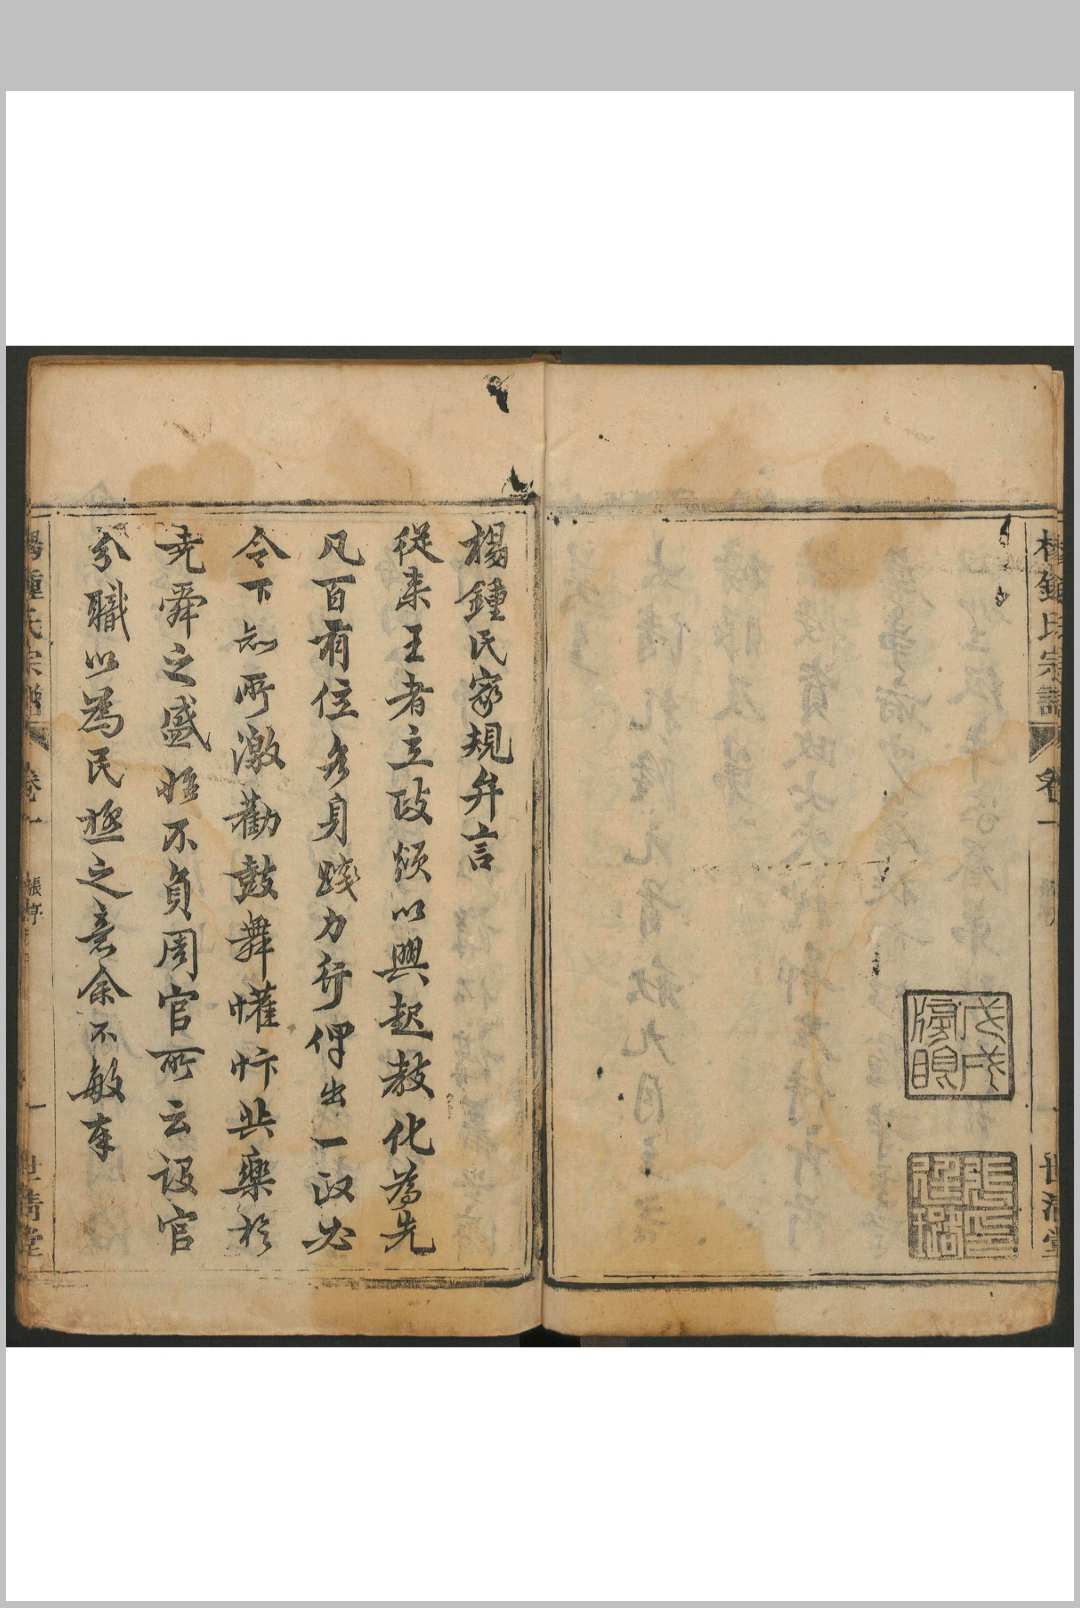 楊鍾氏宗譜
卷一
世清堂
楊鍾氏家規弁言
從來王者立政頒以興起教化為先
凡百有位各身踐力行俾出一政必
令下知所激勸鼓舞懽忭共樂於
堯舜之盛始不負周官所云設官
分職以為民極之意余不敏奉
楊鍾氏宗譜
卷一
張序
一
世清堂